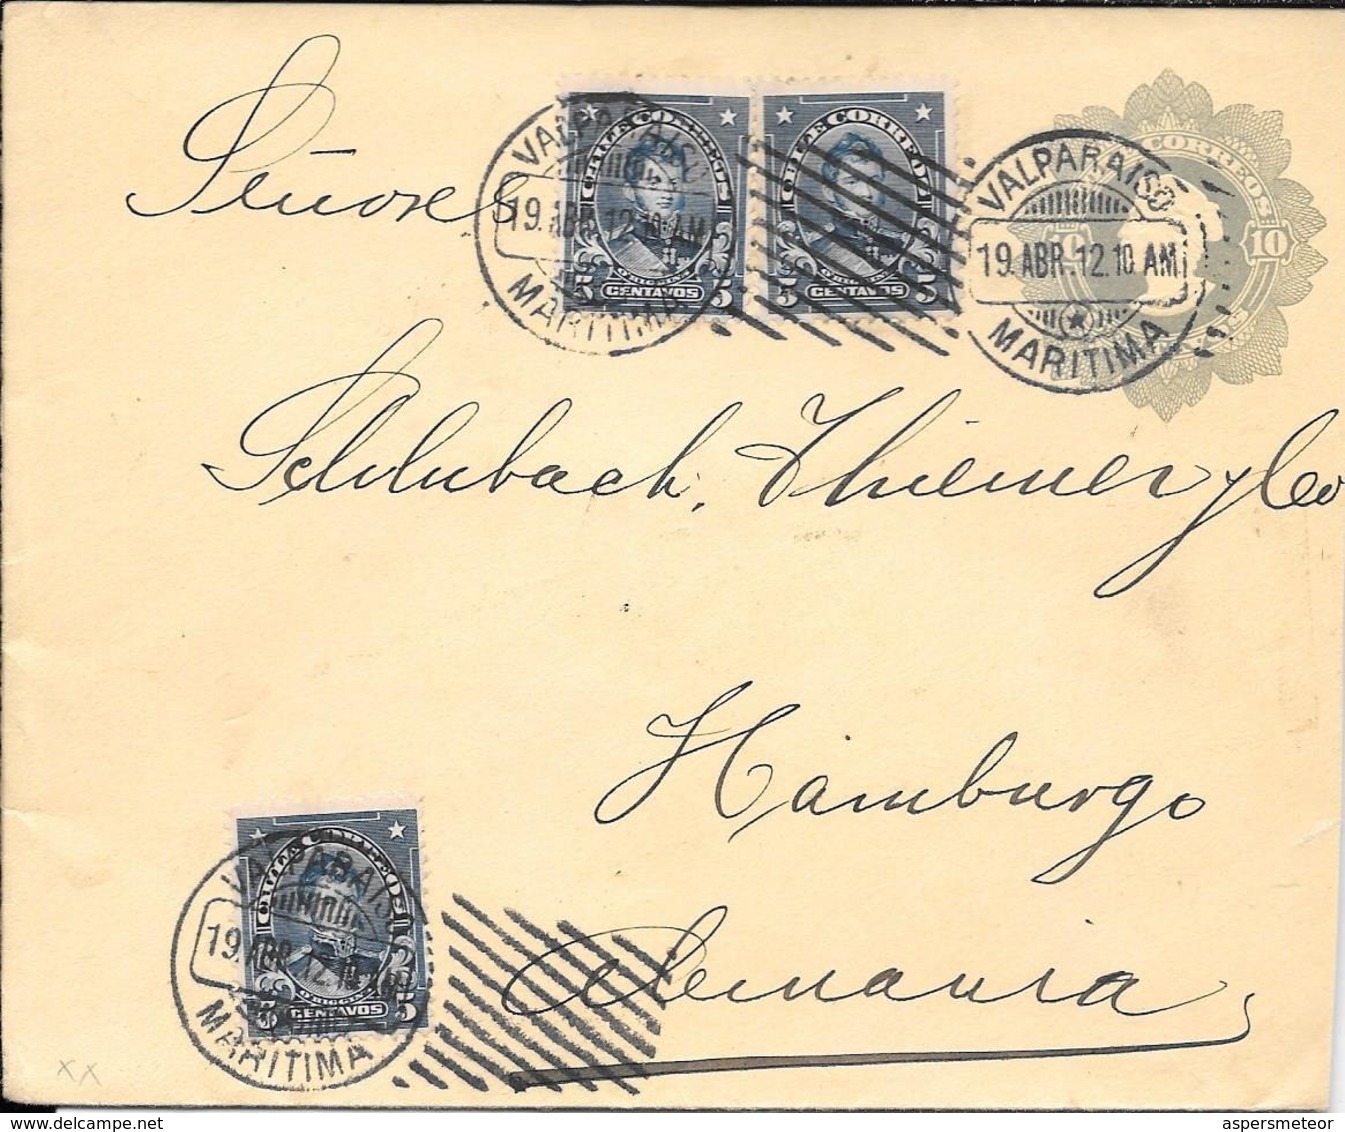 Señores
Schlubach, Thiemer y Co
Hamburgo
Alemania
CHILE CORREOS
O'HIGGINS
5 CENTAVOS 5
CHILE CORREOS
O'HIGGINS
5 CENTAVOS 5
VALPARAISO
19.ABR.12.10 AM
MARITIMA
CORREOS
10
VALPARAISO
19.ABR.12.10 AM
MARITIMA
CHILE CORREOS
O'HIGGINS
5 CENTAVOS 5
VALPARAISO
19.ABR.12.10 AM
MARITIMA
xx
delcampe.net
aspersmeteor